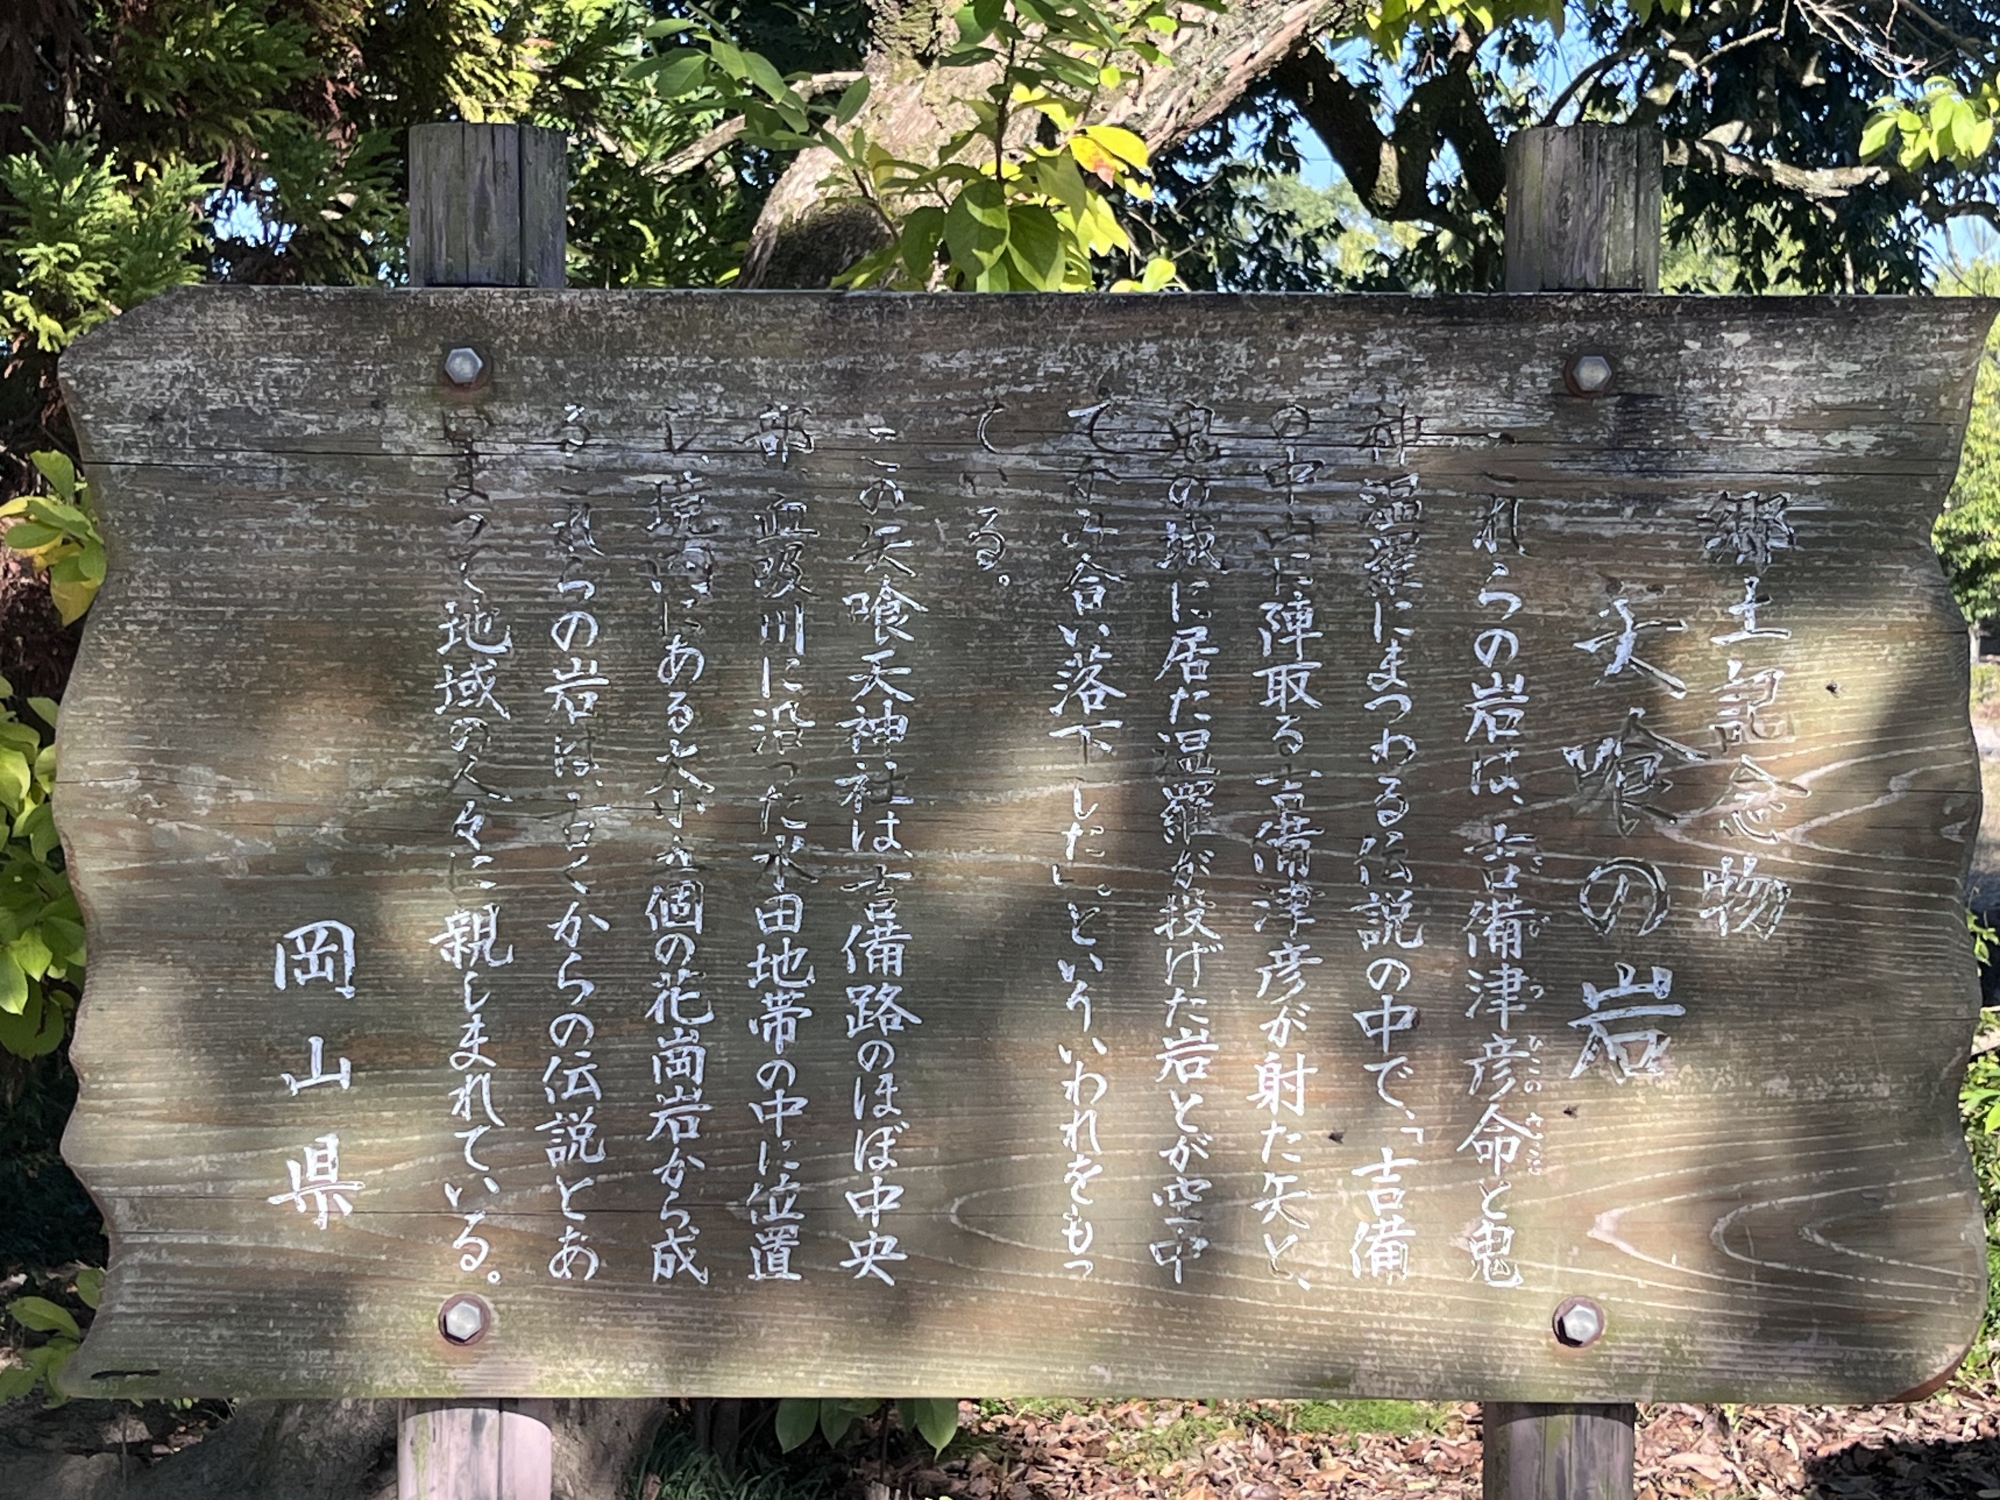 郷土記念物
矢喰の岩
これらの岩は、吉備津彦命と鬼
きびつひこのみこと
神温羅にまつわる伝説の中で、「吉備
の中山に陣取る吉備津彦が射た矢と、
鬼の城に居た温羅が投げた岩とが空中
でかみ合い落下した」。といういわれをもっ
ている。
この矢喰天神社は、吉備路のほぼ中央
部、血吸川に沿った水田地帯の中に位置
し、境内にある大小五個の花崗岩から成
るこれらの岩は、古くからの伝説とあ
いまって地域の人々に親しまれている。
岡山県